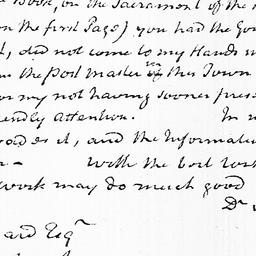 Book, on the Sacrament of the
on the first Page) you had the Goo
did not come to my Hands
the Post Master in this Town
or my not having sooner pres
endly Attention. In
oad it, and the Informatio
With the best
work may do much good
Dr
ard Esqr